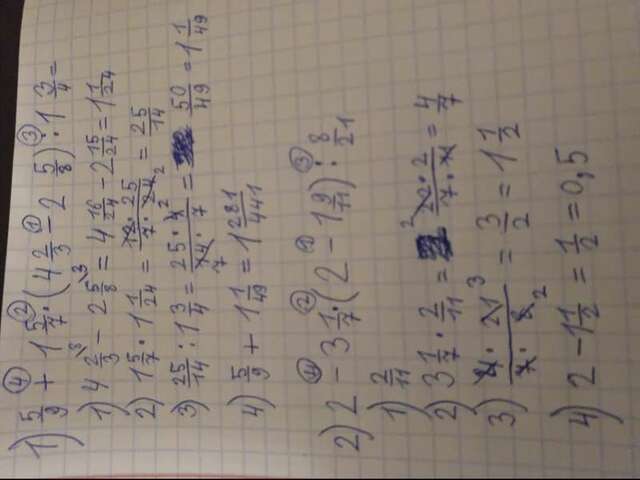 1) 5/9 + 1 5/7 · (4 2/3 - 2 5/8) : 1 3/4 =
1) 4 2/3 - 2 5/8 = 4 16/24 - 2 15/24 = 1 1/24
2) 1 5/7 · 1 1/24 = 12·25/7·24 = 25/14
3) 25/14 : 1 3/4 = 25·4/14·7 = 50/49 = 1 1/49
4) 5/9 + 1 1/49 = 1 281/441
2) 2 - 3 1/7 · (2 - 1 9/11) : 8/21
1) 2/11
2) 3 1/7 · 2/11 = 22·2/7·11 = 4/7
3) 4·21/7·8 = 3/2 = 1 1/2
4) 2 - 1 1/2 = 1/2 = 0,5